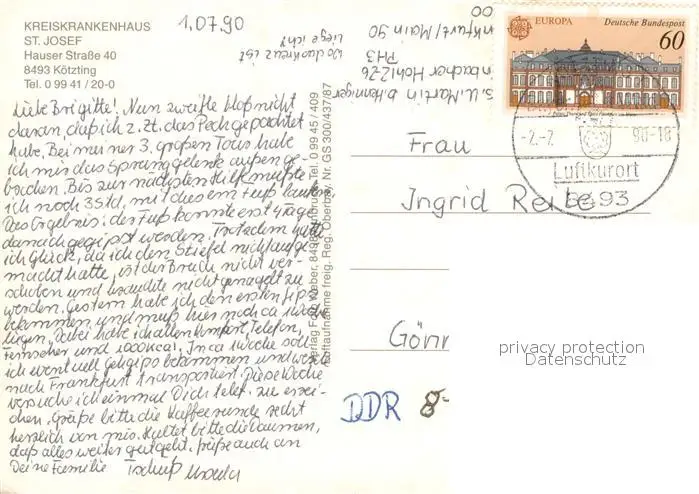 KREISKRANKENHAUS
ST. JOSEF
Hauser Straße 40
8493 Kötzting
Tel. 0 99 41 / 20-0
1.07.90
wo das Kreuz ist
liege ich!
Liebe Brigitte! Nun zweifle bloß nicht
daran, daß ich z. Zt. das Pech gepachtet
habe. Bei meiner 3. großen Tour habe
ich mir das Sprunggelenk außen ge-
brochen. Bis zur nächsten Hilfe mußte
ich noch 3 Std. mit dies em Fuß laufen.
Das Ergebnis: der Fuß konnte erst 4 Tage
danach gegipst werden. Trotzdem hatte
ich Glück, da ich den Stiefel nicht aufge-
macht hatte, ist der Bruch nicht ver-
schoben und brauchte nicht genagelt zu
werden. Gestern habe ich den ersten Gips
bekommen und muß hier noch ca 1 Woche
liegen. Dabei habe ich allen Komfort, Telefon,
Fernseher und 1000 Kcal. In ca 1 Woche soll
ich eventuell Gehgips bekommen und werde
nach Frankfurt transportiert. Diese Woche
versuche ich einmal Dich telef. zu errei-
chen. Grüße bitte die Kaffeerunde recht
herzlich von mir. Haltet bitte die Daumen,
daß alles weiter gut geht. Grüße auch an
Deine Familie Tschüß Ursula
Verlag Foto Weber, 8498 Arnbruck, Tel. 0 99 45 / 409
Luftaufnahme freig. Reg. Oberbay. Nr. GS 300/437/87
s. U. Martin b. Henniger
PH3
nkfurt/Main 90
00
EUROPA
Deutsche Bundespost
60
-2.-7. 90-18
Luftkurort
8493
Frau
Ingrid
Gönn
DDR 8-
privacy protection
Datenschutz